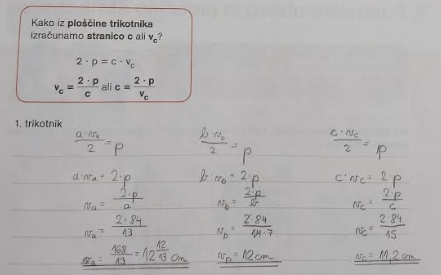 Kako iz ploščine trikotnika
izračunamo stranico c ali v_c?
2 · p = c · v_c
v_c = 2 · p / c ali c = 2 · p / v_c
1. trikotnik
a·v_c / 2 = p
a·v_a = 2·p
v_a = 2·p / a
v_a = 2·84 / 13
v_a = 168 / 13 = 12 12/13 cm
b·v_c / 2 = p
b·v_b = 2·p
v_b = 2·p / b
v_p = 2·84 / 14·7
v_p = 12 cm
c·v_c / 2 = p
c·v_c = 2·p
v_c = 2·p / c
v_c = 2·84 / 15
v_c = 11,2 cm